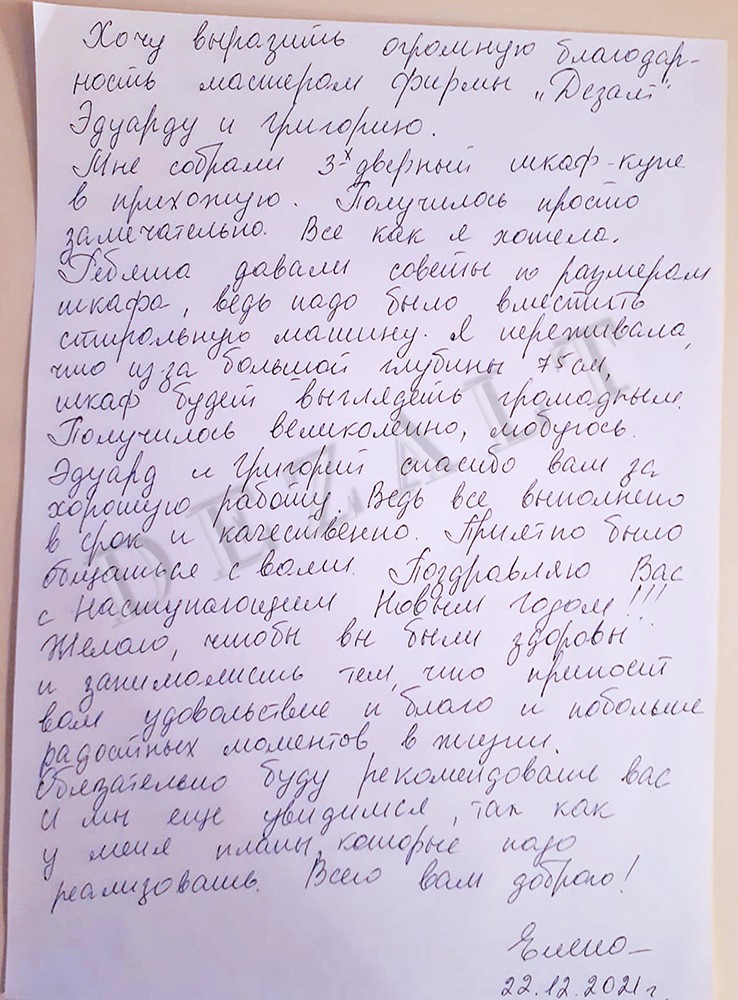 Хочу выразить огромную благодар-
ность мастерам фирмы „Дезалт"
Эдуарду и Григорию.
Мне собрали 3-х дверный шкаф-купе
в прихожую. Получилось просто
замечательно. Все как я хотела.
Ребята давали советы по размерам
шкафа, ведь надо было вместить
стиральную машину. Я переживала,
что из-за большой глубины 75 см,
шкаф будет выглядеть громадным.
Получилось великолепно, любуюсь.
Эдуард и Григорий спасибо вам за
хорошую работу. Ведь все выполнено
в срок и качественно. Приятно было
общаться с вами. Поздравляю Вас
с Наступающим Новым годом!!!
Желаю, чтобы вы были здоровы
и занимались тем, что приносит
вам удовольствие и благо и побольше
радостных моментов в жизни.
Обязательно буду рекомендовать вас
и мы еще увидимся, так как
у меня планы, которые надо
реализовать. Всего вам доброго!
Елена
22.12.2021 г
DEZALT